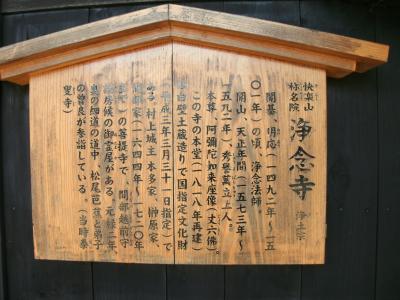 快楽山
称名院
浄念寺
浄土宗
開基、明応(一四九二年~一五
〇一年)の頃、浄念法師。
開山、天正年間(一五七三年~
一五九二年)、秀誉萬立上人。
本尊、阿弥陀如来座像(丈六佛)。
この寺の本堂(一八一八年再建)
は白壁土蔵造りで国指定文化財
(平成三年三月三十一日指定)で
ある。村上城主本多家、榊原家、
間部家(一六四四年~一七二〇年
の菩提寺で、間部越前守
詮房候の御霊屋がある。元禄二年、
奥の細道の道中、松尾芭蕉と弟子
の曽良が参詣している。(当時泰
叟寺)